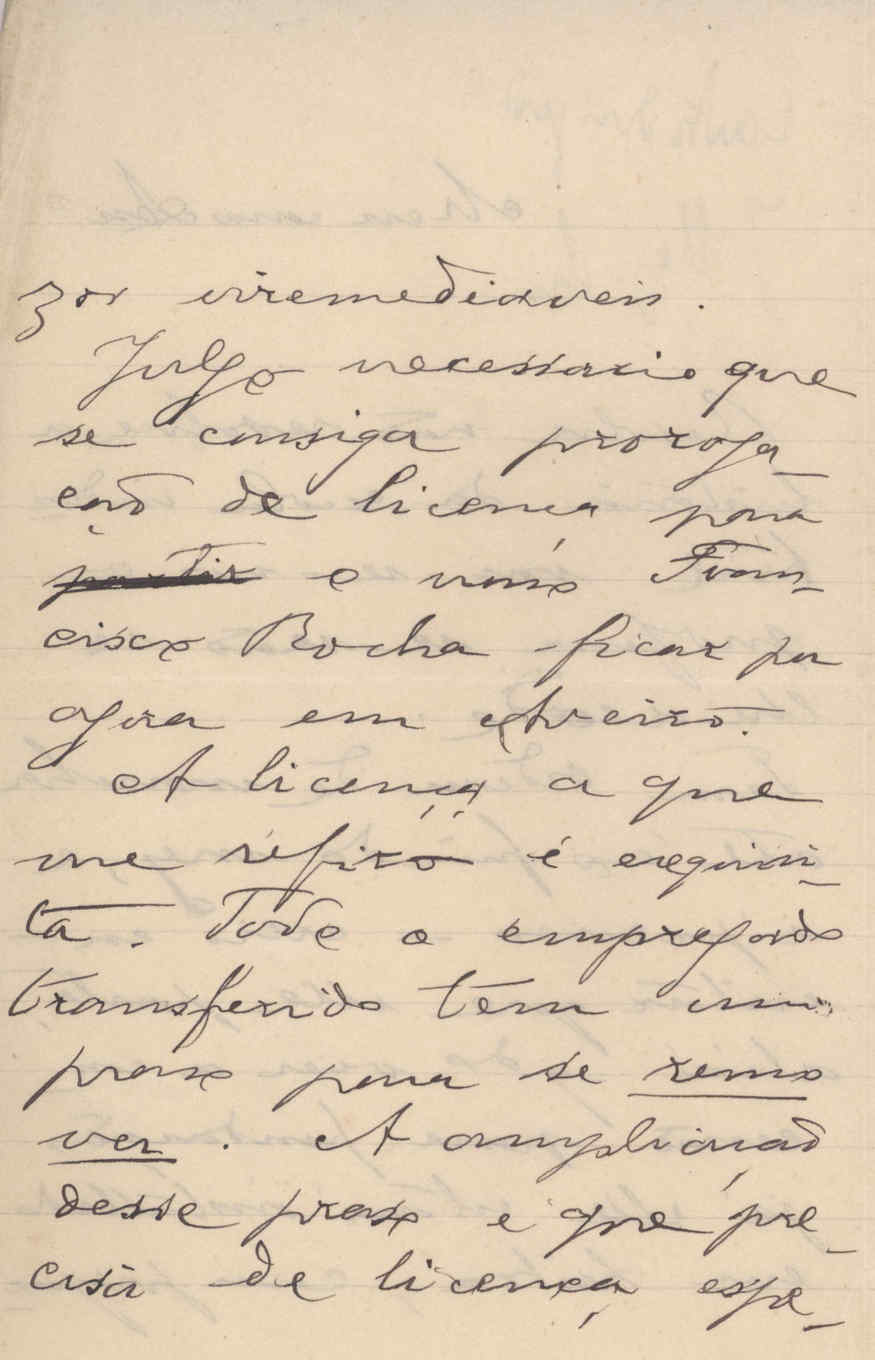 zos irremediaveis.
Julgo necessario que
se consiga proroga-
ção de licença para
partir e nosso Fran-
cisco Rocha ficar por
agora em Aveiro.
A licença a que
me refiro é exquisi-
ta. Todo o empregado
transferido tem um
praso para se remo
ver. A ampliação
desse praso é que pre-
cisa de licença espe-